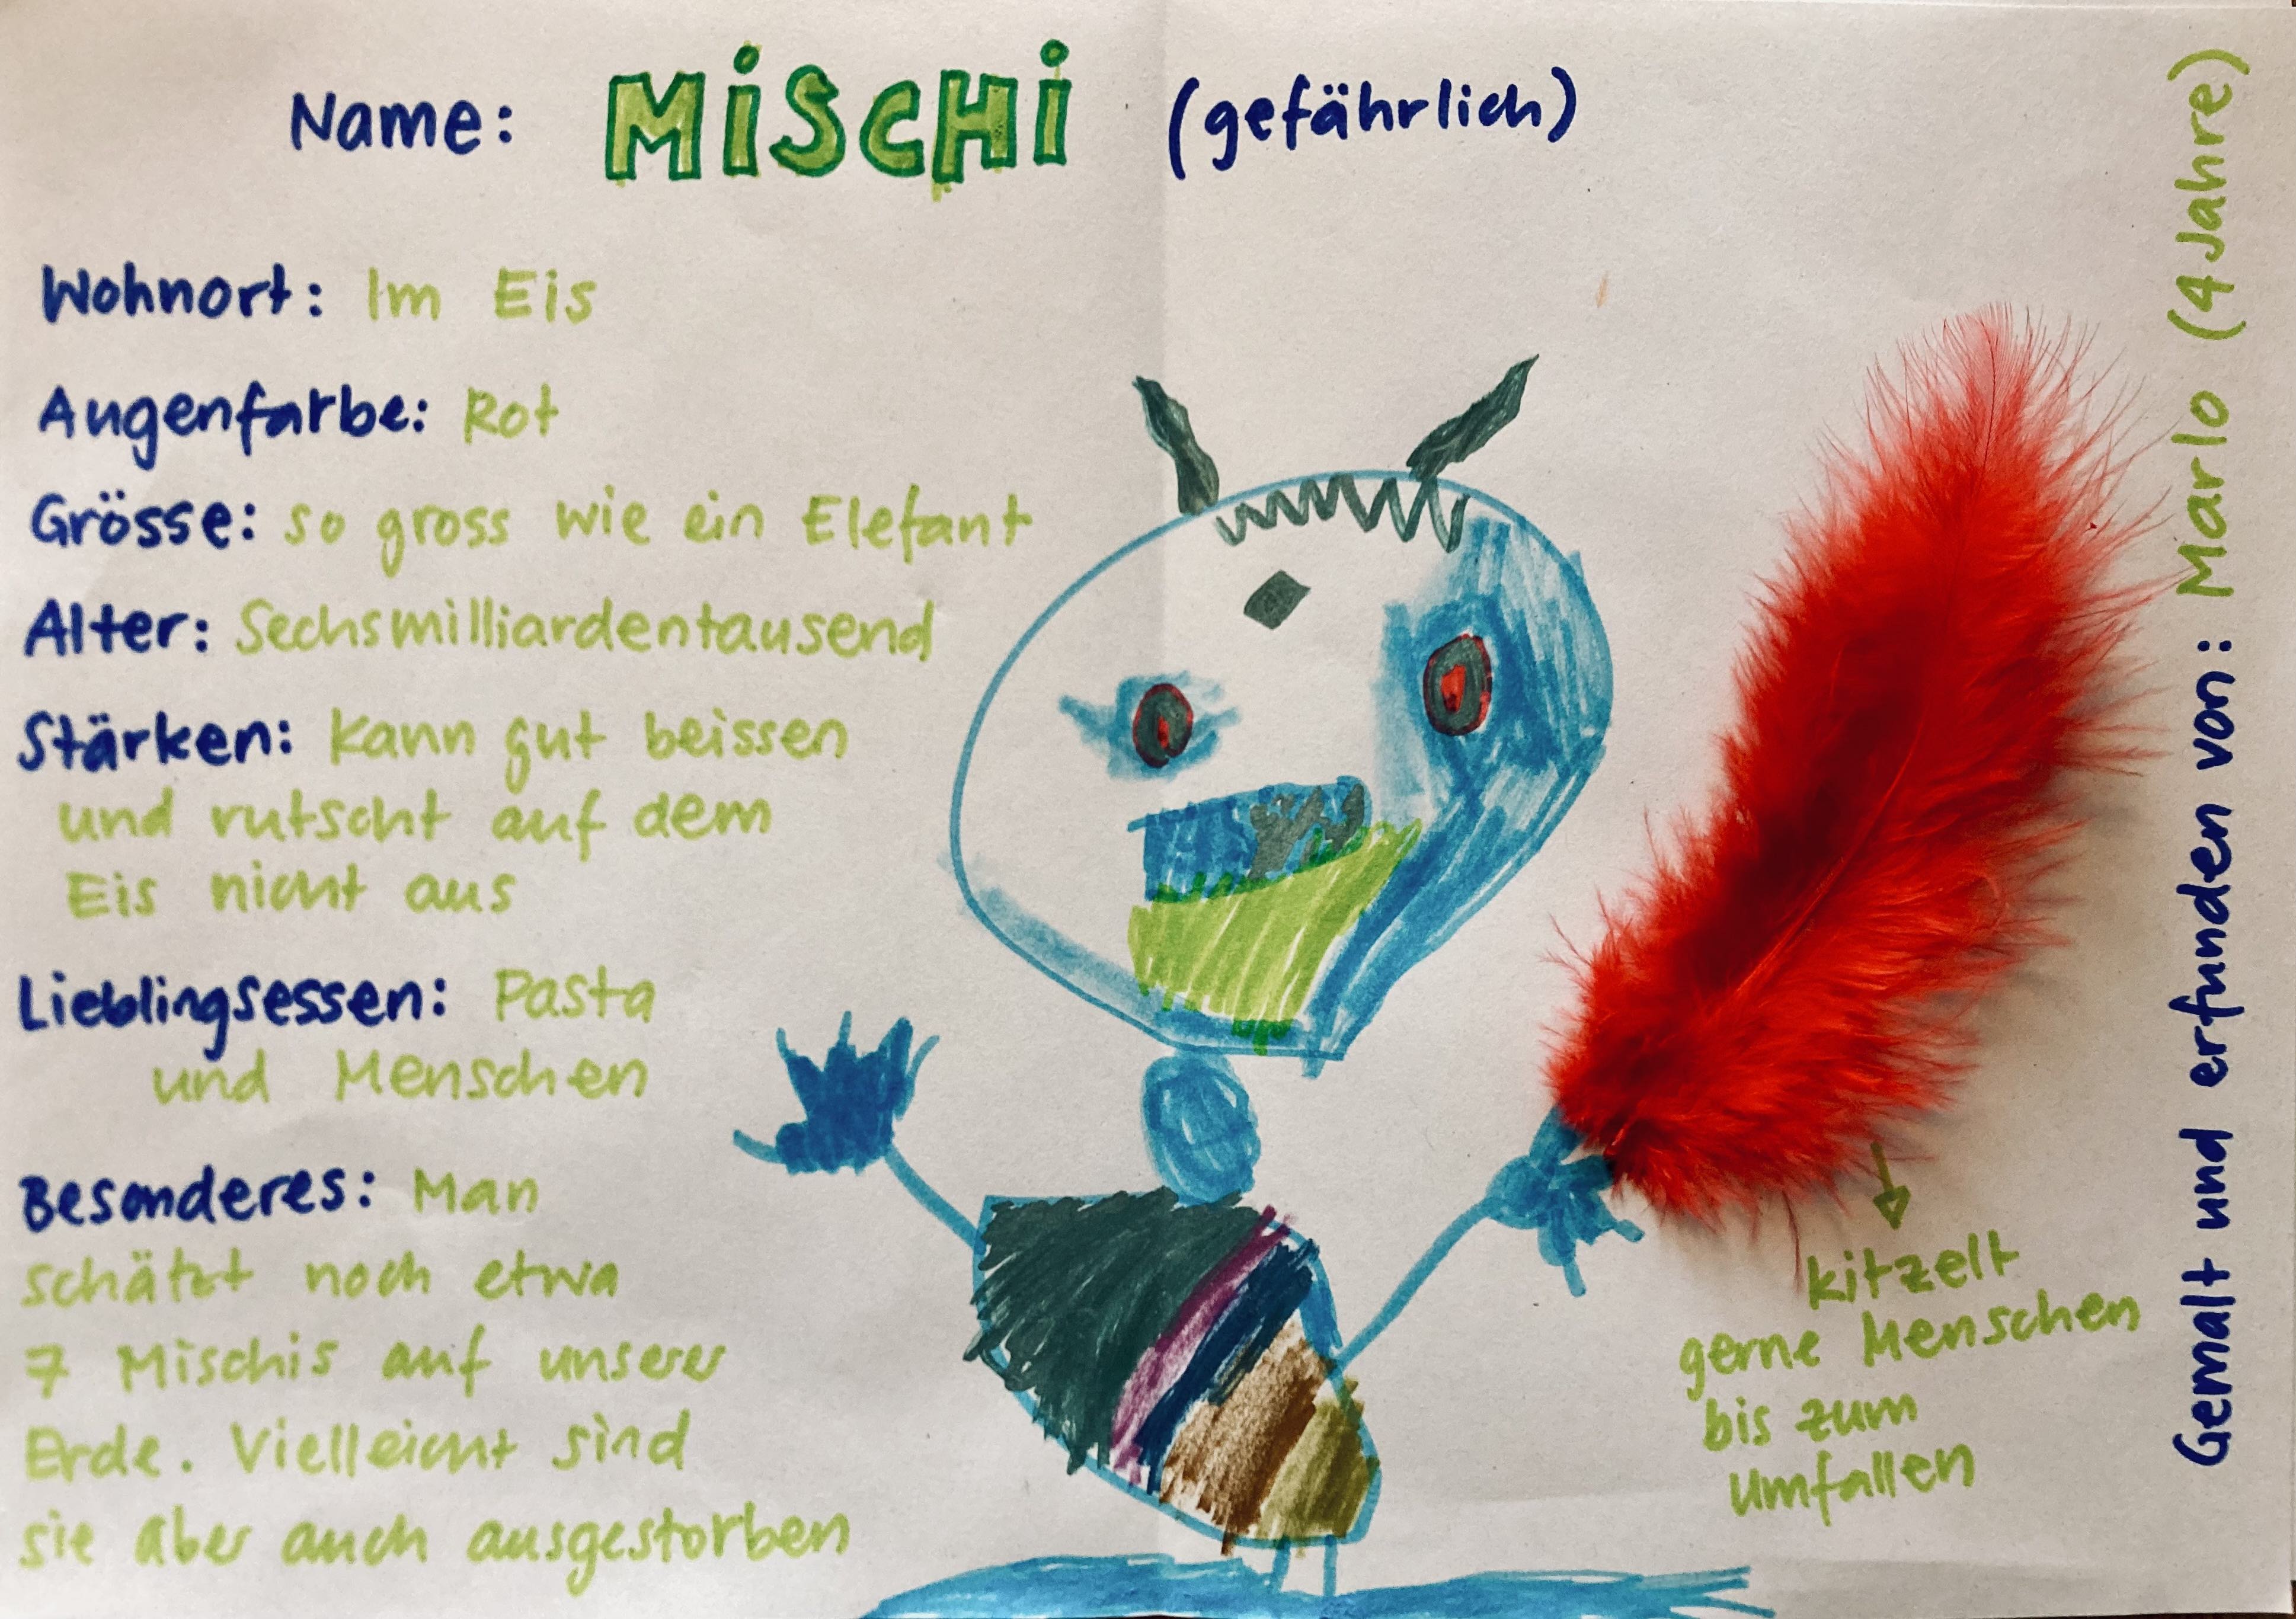 Name: MiSCHi (gefährlich)
Wohnort: Im Eis
Augenfarbe: Rot
Grösse: so gross wie ein Elefant
Alter: Sechsmilliardentausend
Stärken: Kann gut beissen
und rutscht auf dem
Eis nicht aus
Lieblingsessen: Pasta
und Menschen
Besonderes: Man
schätzt noch etwa
7 Mischis auf unserer
Erde. Vielleicht sind
sie aber auch ausgestorben
kitzelt
gerne Menschen
bis zum
Umfallen
Gemalt und erfunden von: Marlo (4 Jahre)